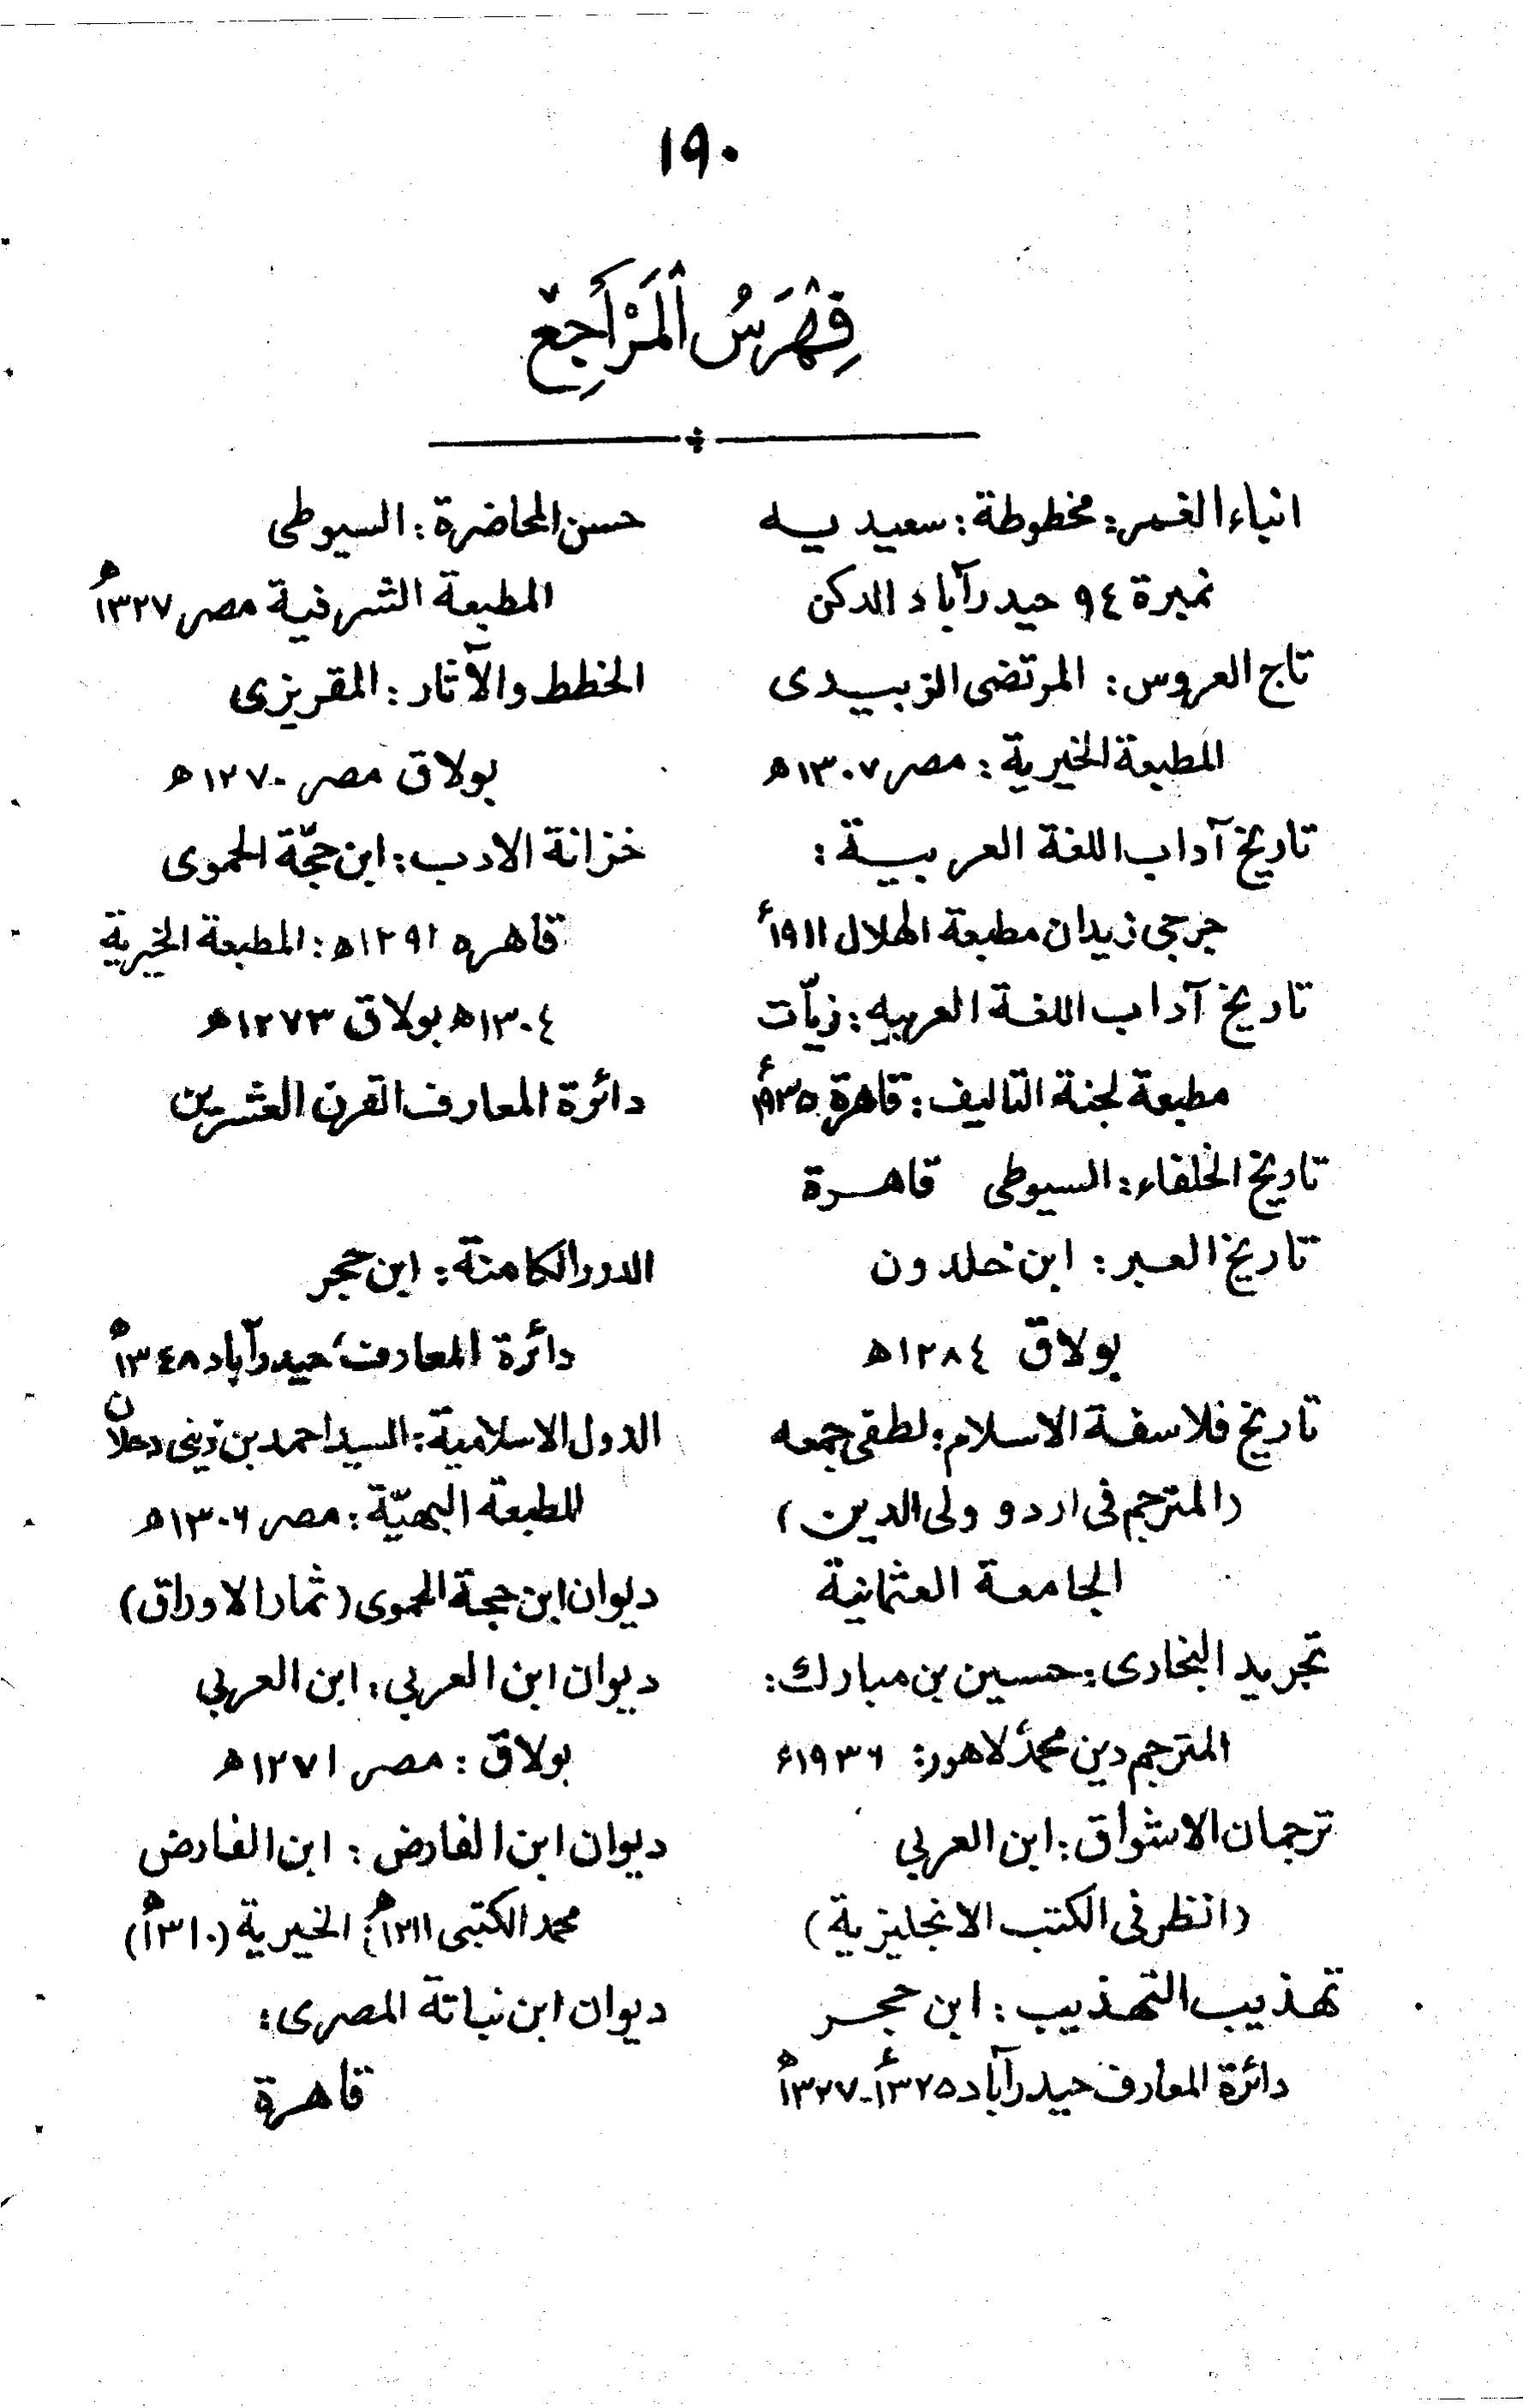 ١٩٠
فِهْرَسُ الْمَرَاجِعْ
انباء الغمر: مخطوطة: سعيديه
نمبرة ٩٤ حيدرآباد الدكن
تاج العروس: المرتضى الزبيدى
المطبعة الخيرية: مصر ١٣٠٧ھ
تاريخ آداب اللغة العربية:
جرجى زيدان مطبعة الهلال ١٩١١ء
تاريخ آداب اللغة العربيه: زيّات
مطبعة لجنة التاليف: قاهرة ١٩٣٥ء
تاريخ الخلفاء: السيوطى قاهرة
تاريخ العبر: ابن خلدون
بولاق ١٢٨٤ھ
تاريخ فلاسفة الاسلام: لطفى جمعه
(المترجم فى اردو ولى الدين)
الجامعة العثمانية
تجريد البخارى: حسين بن مبارك:
المترجم دين محمد لاهور: ١٩٣٦ء
ترجمان الاشواق: ابن العربي
(انظر فى الكتب الانجليزية)
تهذيب التهذيب: ابن حجر
دائرة المعارف حيدرآباد ١٣٢٥ء-١٣٢٧ھ
حسن المحاضرة: السيوطى
المطبعة الشرفية مصر ١٣٢٧ھ
الخطط والآثار: المقريزى
بولاق مصر ١٢٧٠ھ
خزانة الادب: ابن حجّة الحموى
قاهره ١٢٩١ھ: المطبعة الخيرية
١٣٠٤ھ بولاق ١٢٧٣ھ
دائرة المعارف القرن العشرين
الدرر الكامنة: ابن حجر
دائرة المعارف، حيدرآباد ١٣٤٨ھ
الدول الاسلامية: السيد احمد بن زينى دحلان
المطبعة البهيّة: مصر ١٣٠٦ھ
ديوان ابن حجة الحموى (ثمار الاوراق)
ديوان ابن العربي: ابن العربي
بولاق: مصر ١٢٧١ھ
ديوان ابن الفارض: ابن الفارض
محمد الكتبى الخيرية (١٣١٠ھ)
ديوان ابن نباتة المصرى:
قاهرة